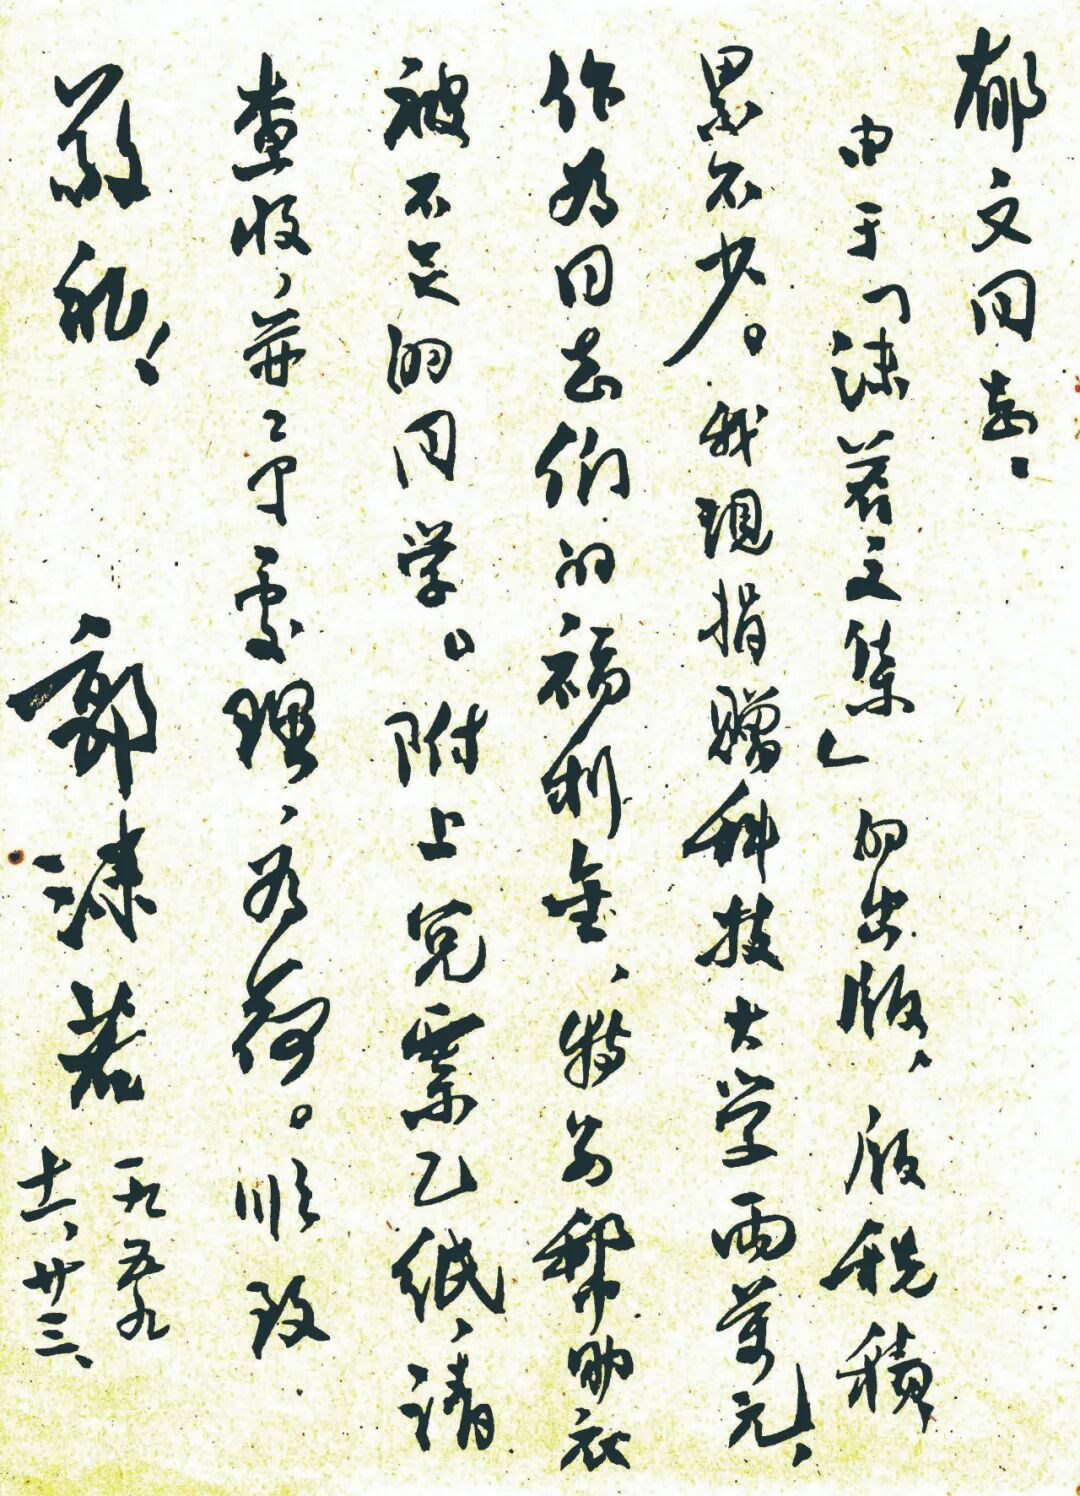 郁文同志：
由于「沫若文集」的出版，版税积
累不少。我现捐赠科技大学两万元，
作为同志们的福利金，特别帮助衣
被不足的同学。附上兑票乙纸，请
查收，并予处理为荷。顺致
敬礼！
郭沫若
一九五九
十二、廿三、